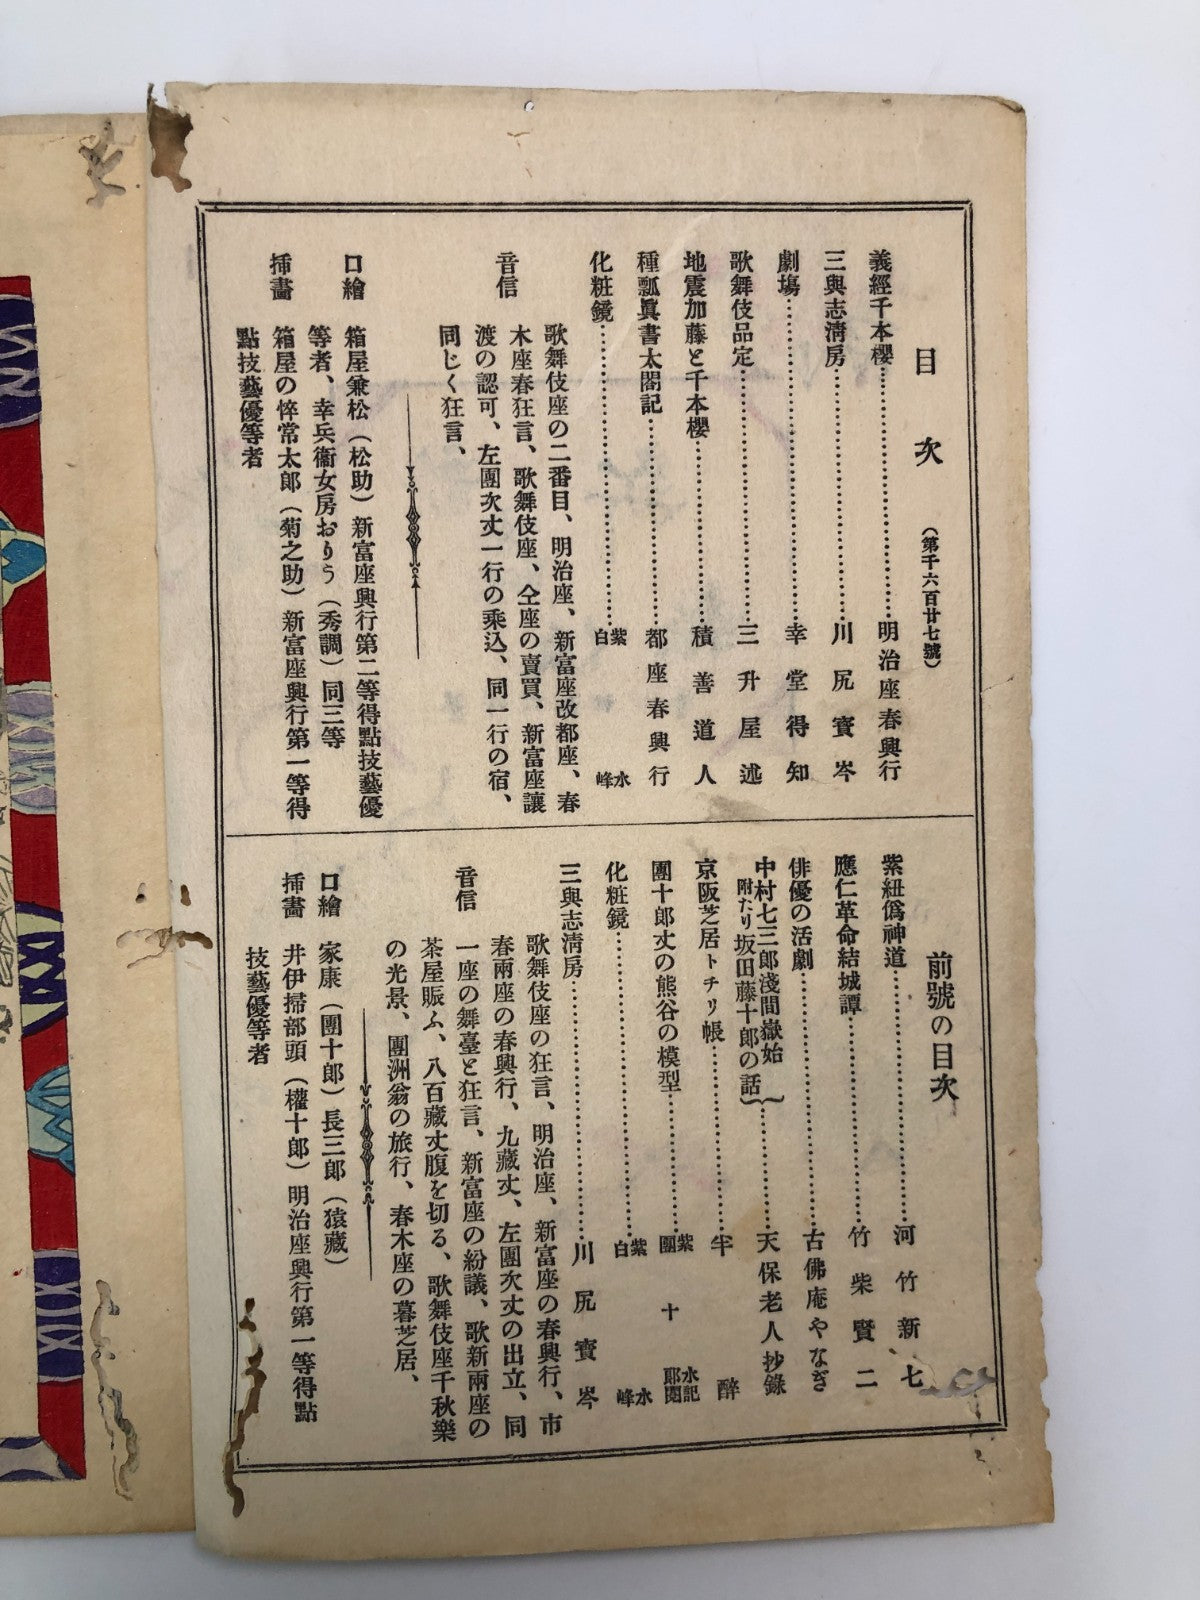 目次
（第千六百廿七號）
義經千本櫻……明治座春興行
三與志淸房……川尻寳岑
劇塲……幸堂得知
歌舞伎品定……三升屋述
地震加藤と千本櫻……積善道人
種瓢眞書太閤記……都座春興行
化粧鏡……紫白 水峰
音信
歌舞伎座の二番目、明治座、新富座改都座、春
木座春狂言、歌舞伎座、仝座の賣買、新富座讓
渡の認可、左團次丈一行の乘込、同一行の宿、
同じく狂言、
口繪
箱屋兼松（松助）新富座興行第二等得點技藝優
等者、幸兵衞女房おりう（秀調）同三等
挿畵
箱屋の悴常太郎（菊之助）新富座興行第一等得
點技藝優等者
前號の目次
紫紐僞神道……河竹新七
應仁革命結城譚……竹柴賢二
俳優の活劇……古佛庵やなぎ
中村七三郎淺間嶽始
附たり坂田藤十郎の話……天保老人抄錄
京阪芝居トチリ帳……半醉
團十郎丈の熊谷の模型……紫團 十 水記郎閲
化粧鏡……紫白 水峰
三與志淸房……川尻寳岑
音信
歌舞伎座の狂言、明治座、新富座の春興行、市
春兩座の春興行、九藏丈、左團次丈の出立、同
一座の舞臺と狂言、新富座の紛議、歌新兩座の
茶屋賑ふ、八百藏丈腹を切る、歌舞伎座千秋樂
の光景、團洲翁の旅行、春木座の暮芝居、
口繪
家康（團十郎）長三郎（猿藏）
挿畵
井伊掃部頭（權十郎）明治座興行第一等得點
技藝優等者